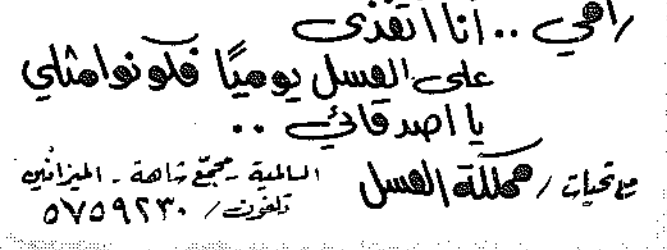 رامي .. أنا اتغذى
على العسل يوميًا فكونوا مثلي
يا اصدقائي ..
مع تحيات / مملكة العسل
السالمية - مجمّع شاهة - الميزانين
تلفون / ٥٧٥٩٢٣٠